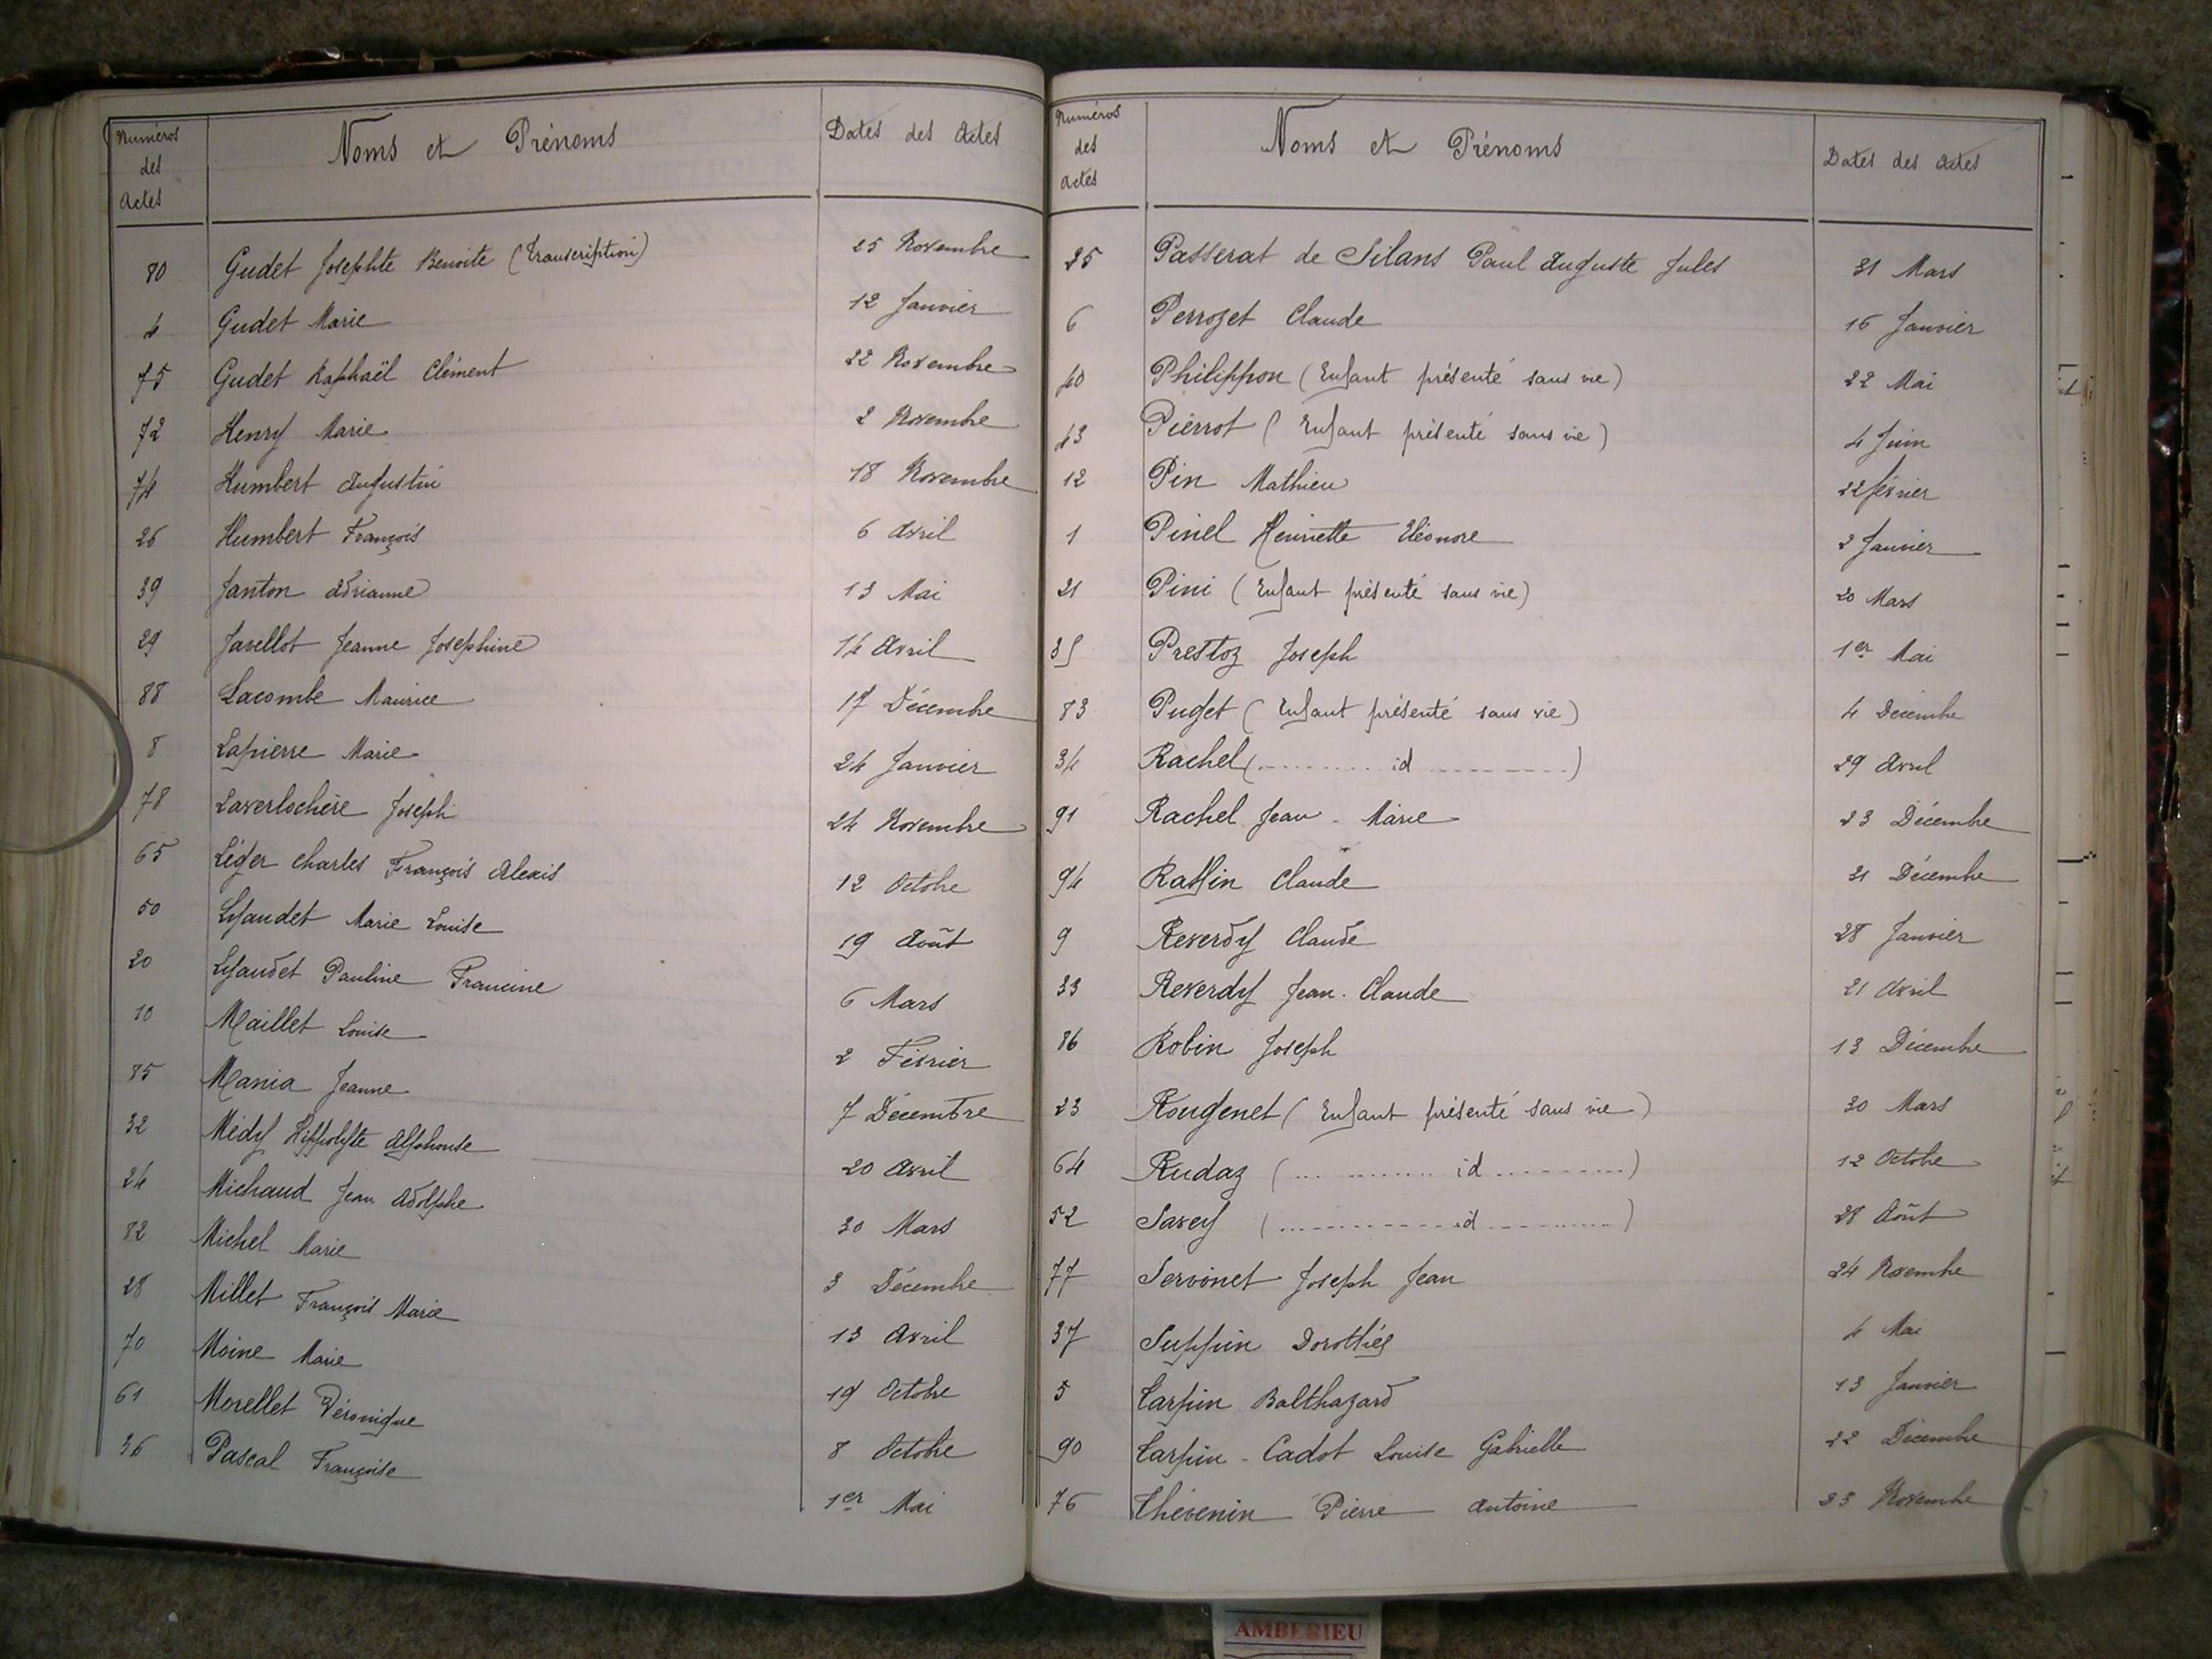 Numéros des Actes Noms et Prénoms Dates des Actes
80 Gudet Josephte Benoite (Transcription) 25 Novembre
4 Gudet Marie 12 Janvier
75 Gudet Raphaël Clément 22 Novembre
72 Henry Marie 2 Novembre
74 Humbert Augustin 18 Novembre
26 Humbert François 6 Avril
39 Janton Adrianne 13 Mai
29 Javellot Jeanne Josephine 14 Avril
88 Lacombe Maurice 17 Décembre
8 Lapierre Marie 24 Janvier
78 Laverlochère Joseph 24 Novembre
65 Léger Charles François Alexis 12 Octobre
50 Lyaudet Marie Louise 19 Août
20 Lyaudet Pauline Francine 6 Mars
10 Maillet Louise 2 Février
85 Mania Jeanne 7 Décembre
32 Médy Hippolyte Alphonse 20 Avril
24 Michaud Jean Adolphe 30 Mars
82 Michel Marie 3 Décembre
28 Millet François Marie 13 Avril
70 Moine Marie 19 Octobre
61 Morellet Véronique 8 Octobre
36 Pascal Françoise 1er Mai
Numéros des Actes Noms et Prénoms Dates des Actes
25 Passerat de Silans Paul Auguste Jules 31 Mars
6 Perrozet Claude 16 Janvier
40 Philippon (Enfant présenté sans vie) 22 Mai
43 Pierrot (Enfant présenté sans vie) 4 Juin
12 Pin Mathieu 22 février
1 Pinel Henriette Eléonore 2 Janvier
21 Pini (Enfant présenté sans vie) 20 Mars
35 Prestoz Joseph 1er Mai
83 Puget (Enfant présenté sans vie) 4 Décembre
34 Rachel (.......... id ..........) 29 Avril
91 Rachel Jean-Marie 23 Décembre
94 Claude 31 Décembre
9 Reverdy Claude 28 Janvier
33 Reverdy Jean-Claude 21 Avril
86 Robin Joseph 13 Décembre
23 Rougenet (Enfant présenté sans vie) 30 Mars
64 Rudaz (.......... id ..........) 12 Octobre
52 Savey (.......... id ..........) 28 Août
77 Servonet Joseph Jean 24 Novembre
37 Suppin Dorothée 4 Mai
5 Tarpin Balthazard 13 Janvier
90 Tarpin-Cadot Louise Gabrielle 22 Décembre
76 Thévenin Pierre Antoine 23 Novembre
AMBERIEU